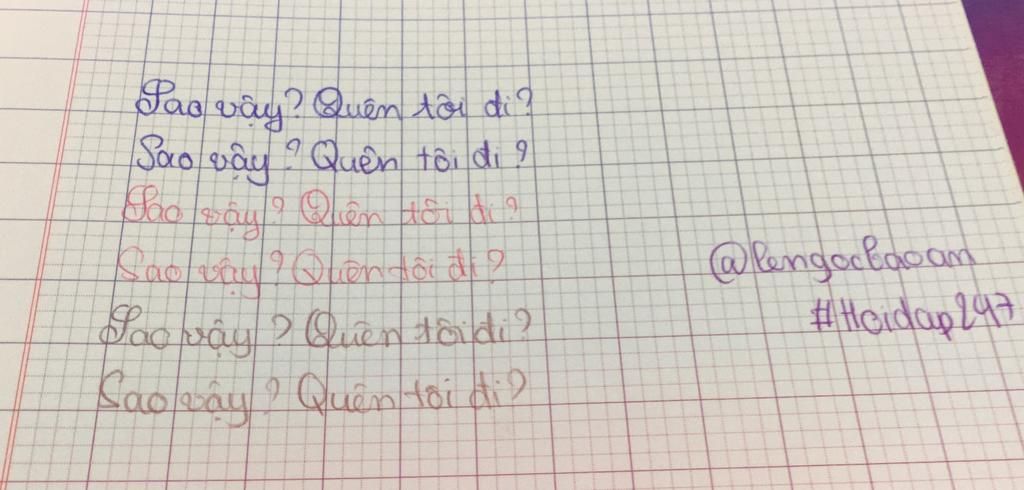 Sao vậy? Quên tôi đi?
Sao vậy? Quên tôi đi?
Sao vậy? Quên tôi đi?
Sao vậy? Quên tôi đi?
Sao vậy? Quên tôi đi?
Sao vậy? Quên tôi đi?
@lengocbaoan
#Hoidap247